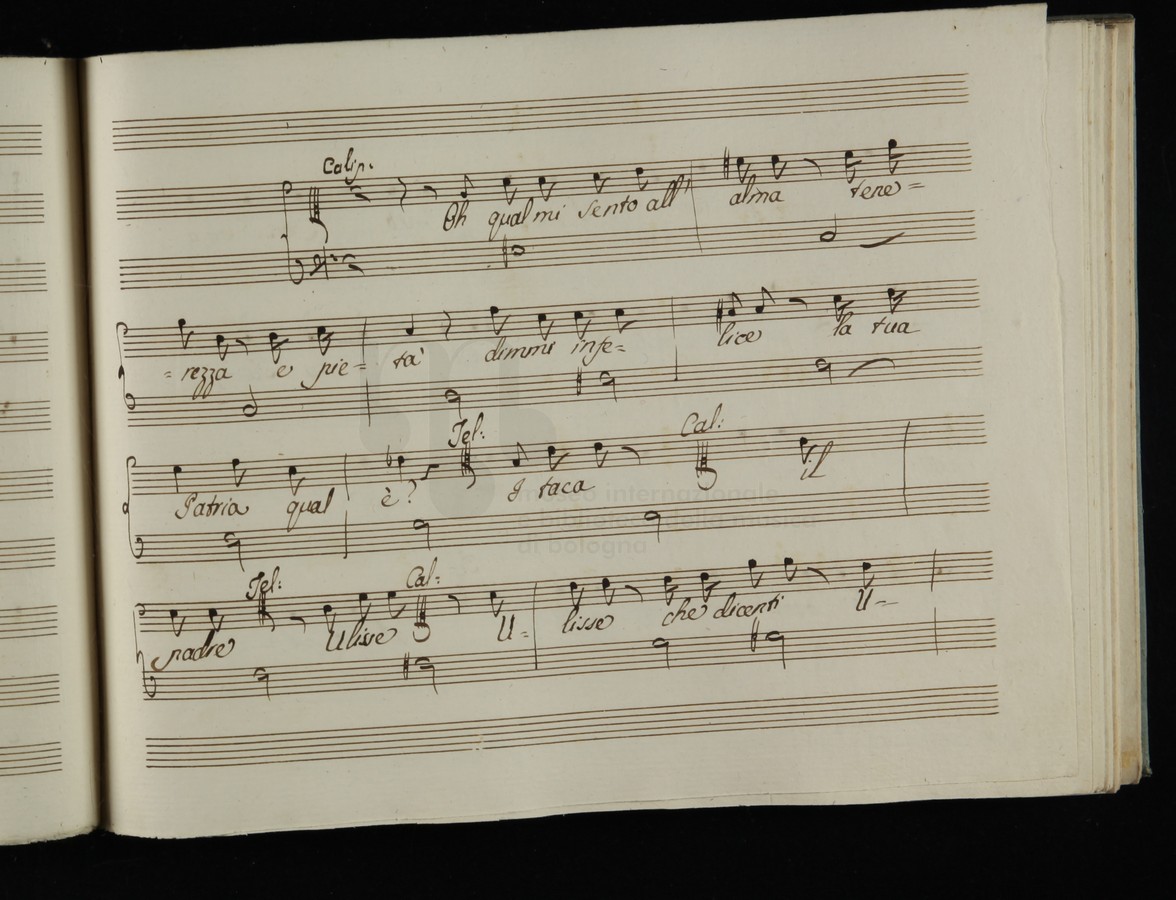 Calip.
Oh qual mi sento all' alma tene=
=rezza e pie=ta' dimmi infe=lice la tua
Tel: Cal:
Patria qual è? Itaca il
Tel: Cal:
padre Ulisse U=lisse che dicesti U=
museo internazionale
e biblioteca della musica
di bologna